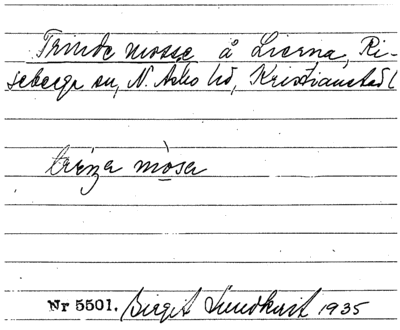 Trinde mosse å Lierna, Ri-
seberga sn, N. Åsbo hd, Kristianstad l
mòsa
Nr 5501. Birgit Lundkvist 1935